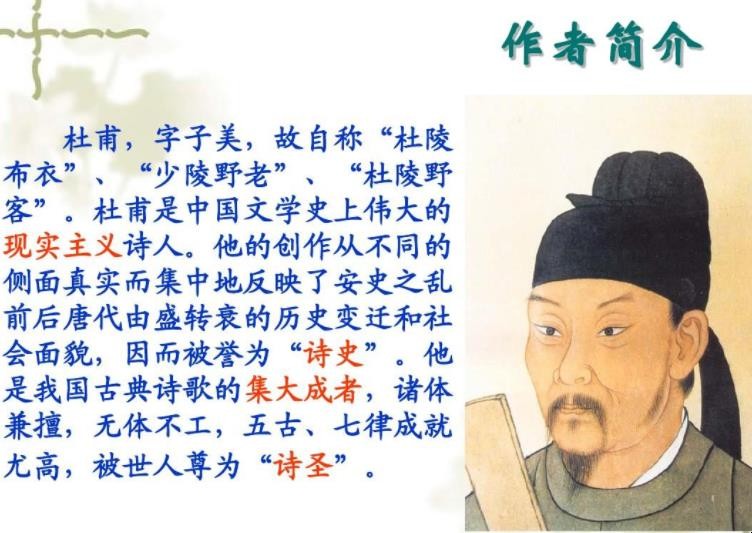 作者简介
杜甫，字子美，故自称“杜陵
布衣”、“少陵野老”、“杜陵野
客”。杜甫是中国文学史上伟大的
现实主义诗人。他的创作从不同的
侧面真实而集中地反映了安史之乱
前后唐代由盛转衰的历史变迁和社
会面貌，因而被誉为“诗史”。他
是我国古典诗歌的集大成者，诸体
兼擅，无体不工，五古、七律成就
尤高，被世人尊为“诗圣”。